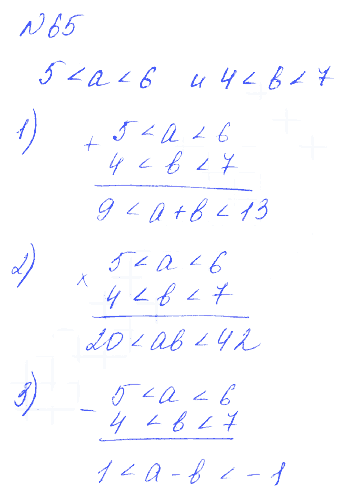 №65
5 < a < 6 и 4 < в < 7
1) + 5 < a < 6
4 < в < 7
9 < a + в < 13
2) × 5 < a < 6
4 < в < 7
20 < aв < 42
3) − 5 < a < 6
4 < в < 7
1 < a − в < −1